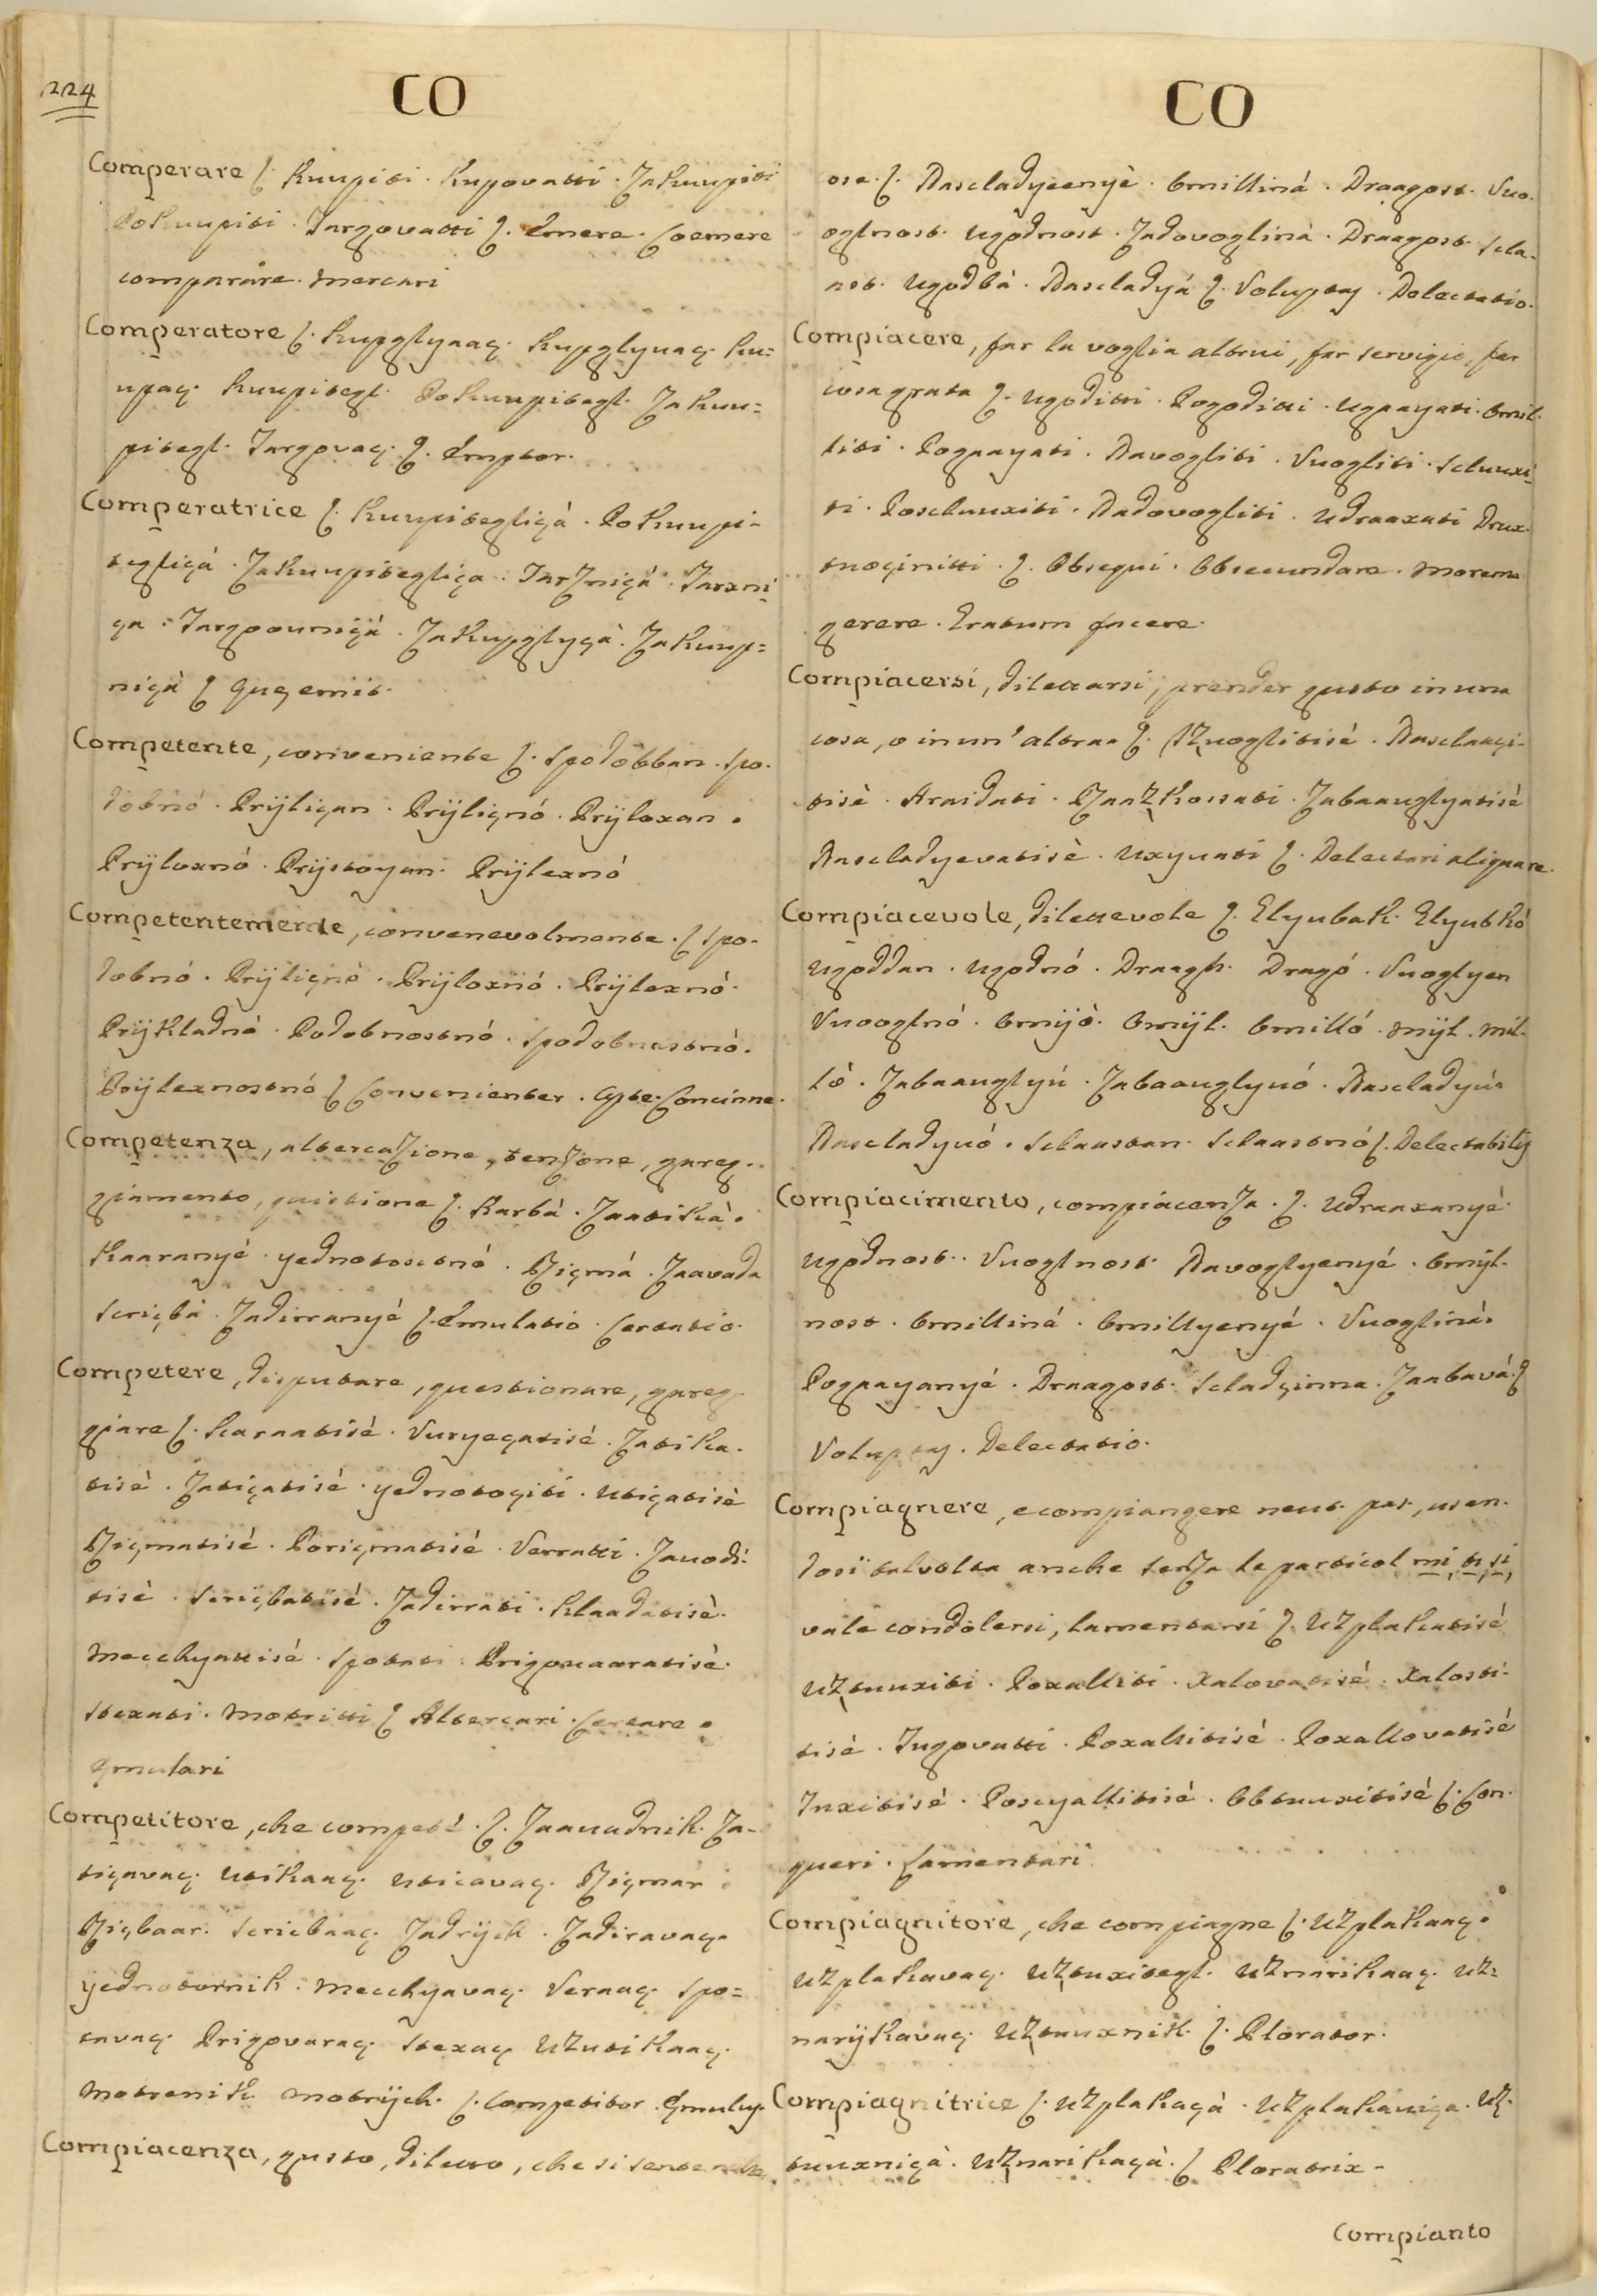 224
CO
Comperare ʃ. Kuupiti. Kupovatti. Zakuupiti
Pokuupiti. Targovatti ʃ. Emere. Coemere
comparare. mercari
Comperatore ʃ. Kupglyaaç. Kupglyuaç. Ku=
upaç. Kuupitegl. Pokuupitegl. Zakuu=
pitegl. Targovaç. ʃ. Emptor.
Comperatrice ʃ. Kuupitegliçà. Pokuupi-
tegliçà. Zakuupitegliça. Tarzniçà. Tarxni
ça. Targoourniçà. Zakupglyçà. Zakuup=
niçà ʃ Quę emit.
Competente, conveniente ʃ. Spodobban. Spo-
dobnó. Prijliçan. Prijliçnó. Prijloxan.
Prijloxnó. Prijstoyan. Prijlexnó
Competentemente, convenevolmente. ʃ Spo-
dobnó. Prijliçnò. Prijloxnó. Prijlexnó.
Prijkladnò. Podobnostnó. Spodobnostnó.
Prijlexnostnó ʃ Convenienter. Apte. Concinne.
Competenza, altercazione, tenzone, gareg-
giamento, quistione ʃ. Karbà. Zaatikà.
Kaaranyé. yednotosctnó. Rjiçmá. Zaavada
Scriçbà. Zadirranyé ʃ. Emulatio. Certatio.
Competere, disputare, questionare, gareg-
giare ʃ. Karaatisè. Vuryeçatisé. Zatika-
tisè. Zatiçatisè. yednotoçiti. Utiçatisè
Rjiçmatisé. Poriçmatisé. Verratti. Zauodi-
tisè. Scriçbatisé. Zadirrati. Klaadatisè.
Mecchyattisé. Spotati. Prigouaaratisè.
Stexati. Motritti ʃ Altercari. Certare.
Ęmulari
Competitore, che competè. ʃ. Zaauadnik. Za-
tiçavaç. Utikaaç. Uticavaç. Rjiçmar
Rjiçbaar. Scricbaaç. Zadrijch. Zadiravaç.
yednotornik. Mecchyavaç. Veraaç. Spo=
tavaç. Prigovaraç. Stexaç Uzutikaaç.
Motrenik. Motrijch. ʃ. Competitor. Ęmuluſ.
Compiacenza, gusto, diletto, che si sente nelle
CO
ose. ʃ. Rascladyeenyè. Omilliná. Draagost. Vuo-
oglnost. Ugodnost. Zadovogliná. Draagost. Scla-
ast. Ugodbà. Rascladyá ʃ. Voluptaſ. Delectatio.
Compiacere, far la voglia altrui, far servigio, far
cosa grata ʃ. Ugoditti. Pogoditti. Ugaayati. Omil-
liti. Pogaayati. Navogliti. Vuogliti. Scluuxi
ti. Poscluuxiti. Nadovogliti. Udraaxati Drux-
tuoçinitti. ʃ. Obsequi. Obsecundare. Morem
gerere. Gratum facere.
Compiacersi, dilettarsi, prender gusto in una
cosa, o in un' altraa ʃ. Uzuoglitisè. Rasclaaçi-
tisè. Araidati. Raazkossati. Zabaauglyatisè
Rascladyevatisè. Uxyuati ʃ. Delectari aliqua re.
Compiacevole, dilettevole ʃ. Glyubak. Glyubkó
Ugoddan. Ugodnó. Draagh. Dragó. Vuoglyen
Vuooglnó. Omijò. Omijl. Omilló. mijl. mil-
lò. Zabaauglyú. Zabaauglyuó. Rascladyú.
Rascladyuó. Sclaastan. Sclaastnó ʃ. Delectabiliſ
Compiacimento, compiacenza. ʃ. Udraaxanyé.
Ugodnost. Vuoglnost. Navoglyenyé. Omijl-
nost. Omilliná. Omillyenyé. Vuogliná.
Pogaayanyé. Draagost. Scladçinna. Zaabavá. ʃ
Voluptaſ. Delectatio.
Compiagnere, e compiangere neut. pas., usan-
dosi talvolta anche senza le particol. mi, ti, si,
vale condolersi, lamentarsi ʃ. Uzplakatisé
Uztuuxiti. Poxalliti. Xalovatisé. Xalosti-
tisè. Tugovatti. Poxallitisé. Poxallovatisé
Tuxitisè. Poscyallitisè. Obtuuxitisè ʃ. Con-
queri. Lamentari
Compiagnitore, che compiagne ʃ. Uzplakaaç.
Uzplakavaç. Uztuxitegl. Uznarikaaç. Uz=
narijkavaç. Uztuuxnik. ʃ. Plorator.
Compiagnitrice ʃ. Uzplakaçà. Uzplakauiça. Uz-
tuuxniçà. Uznarikaçà. ʃ Ploratrix-
Compianto